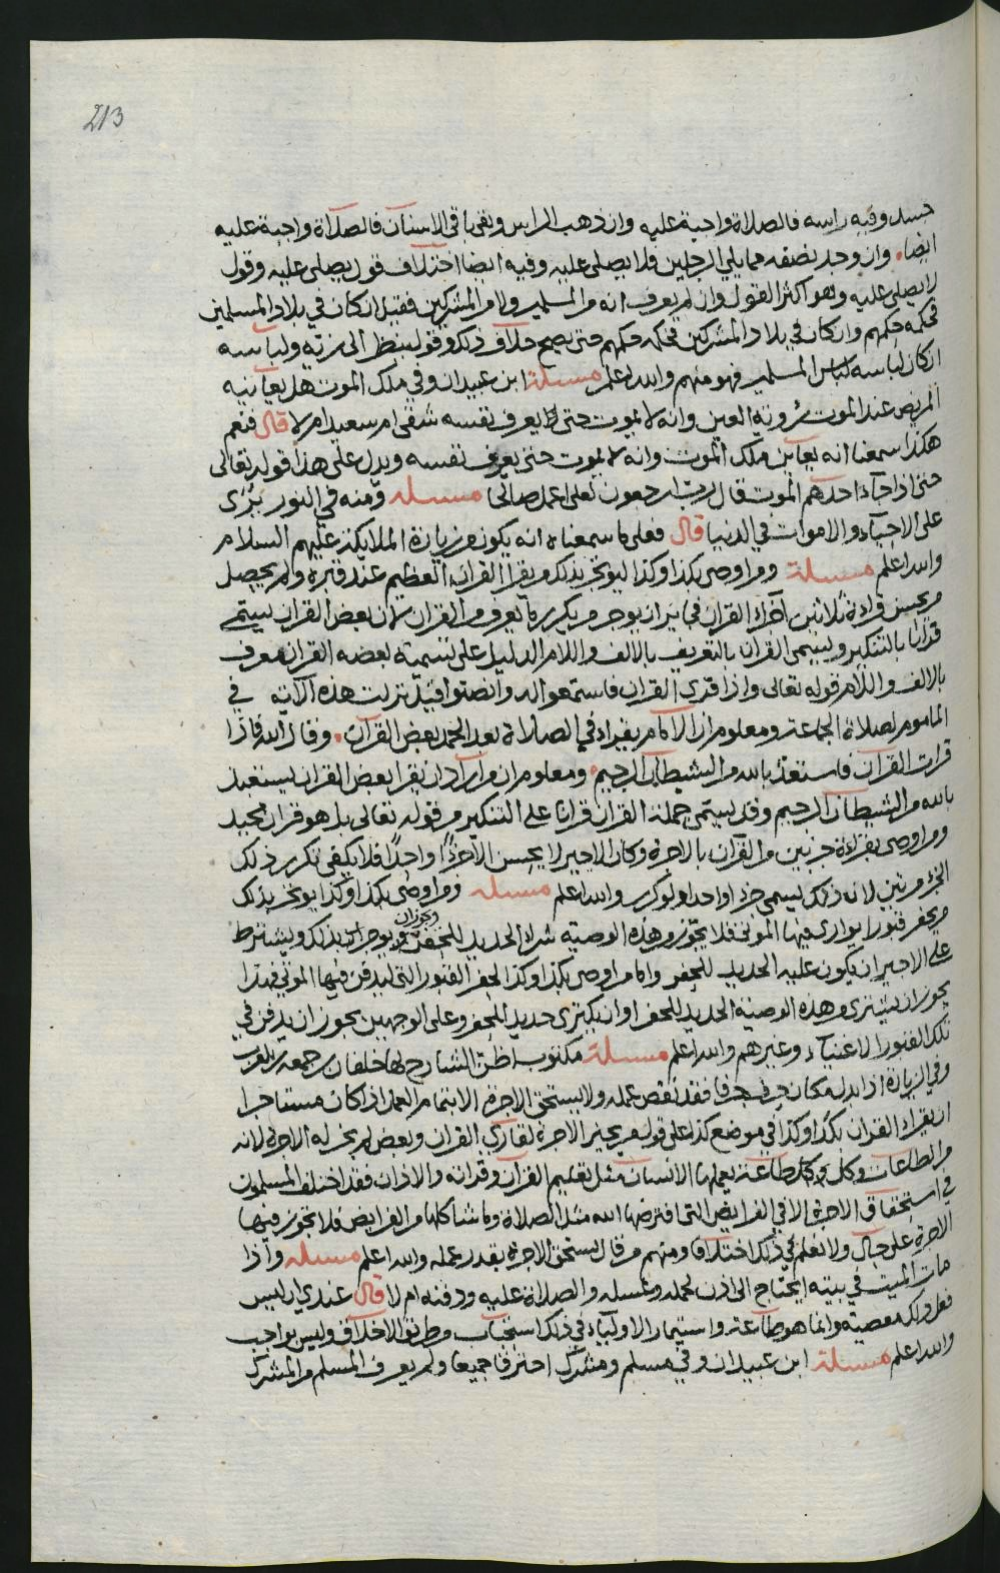 213
جسد وفيه راسه فالصلاة واجبة عليه وان ذهب الراس وبقي باقي الانسان فالصلاة واجبة عليه
ايضا وان وجد نصفه مما يلي الرجلين فلا يصلى عليه وفيه ايضا اختلاف قول يصلى عليه وقول
لا يصلى عليه وهو اكثر القول وان لم يعرف انه من المسلمين ولا من المشركين فقيل ان كان في بلاد المسلمين
فحكمه حكمهم وان كان في بلاد المشركين فحكمه حكمهم حتى يصح خلاف ذلك وقول ينظر الى زيه ولباسه
ان كان لباسه لباس المسلمين فهو منهم والله اعلم مسئلة ابن عبيدان وفي ملك الموت هل يعاينه
المريض عند الموت رؤية العين وانه لا يموت حتى يعرف نفسه شقي ام سعيد ام لا قال فنعم
هكذا سمعنا انه يعاين ملك الموت وانه لا يموت حتى يعرف نفسه ويدل على هذا قوله تعالى
حتى اذا جاء احدهم الموت قال رب ارجعون لعلي اعمل صالحا مسئلة ومنه في النور يرى
على الاحياء والاموات في الدنيا قال فعلى ما سمعناه انه يكون من زيارة الملايكة عليهم السلام
والله اعلم مسئلة ومن اوصى بكذا وكذا ليوتجر بذلك من يقرا القران العظيم عند قبره ولم يحصل
من يحسن قراءة ثلاثين اجزاء القران فجايز ان يوجر من يكرر ما يعرف من القران لان بعض القران يسمى
قرانا بالتنكير ويسمى القران بالتعريف بالالف واللام الدليل على تسمية بعضه القران معرف
بالالف واللام قوله تعالى واذا قري القران فاستمعوا له وانصتوا فقيل نزلت هذه الآية في
الماموم لصلاة الجماعة ومعلوم ان الامام يقرا في الصلاة بعد الحمد بعض القرآن وقال الله فاذا
قرات القرآن فاستعذ بالله من الشيطان الرجيم ومعلوم ان من اراد ان يقرا بعض القران يستعيذ
بالله من الشيطان الرجيم وقد يسمى جملة القران قرانا على التنكير من قوله تعالى بل هو قران مجيد
ومن اوصى بقراءة جزئين من القرآن بالاجرة وكان الاجير لا يحسن الا جزءا واحدا فلا يكفي تكرر ذلك
الجزء مرتين لان ذلك يسمى جزءا واحدا ولو كرر والله اعلم مسئلة ومن اوصى بكذا وكذا يوتجر بذلك
من يحفر قبورا يوارى فيها الموتى فلا يجوز من هذه الوصية شراء الحديد للحفر ويجوز ان يوجر بذلك ويشترط
على الاجير ان يكون عليه الحديد للحفر واما من اوصى بكذا وكذا لحفر القبور التي ليدفن فيها الموتى فهذا
يجوز ان يشترى من هذه الوصية الحديد للحفر او ان يكترى حديد للحفر وعلى الوجهين يجوز ان يدفن في
تلك القبور الاغنياء وغيرهم والله اعلم مسئلة مكتوبه اظن الشارح لها خلفان بن جمعه
وفي الزيارة اذا بدل مكان حرف حرفا فقد نقص عمله ولا يستحق الاجرة الا بتمام العمل اذا كان مستاجرا
ان يقرا القران بكذا وكذا في موضع كذا على قول من يجيز الاجرة لقاري القران وبعض لم يجز له الاجرة لانه
من الطاعات وكل طاعة يعملها الانسان مثل تعليم القرآن وقراته والاذان فقد اختلف المسلمون
في استحقاق الاجرة الا في الفرايض التي افترضها الله مثل الصلاة وما شاكلها من الفرايض فلا تجوز فيها
الاجرة على حال ولا نعلم في ذلك اختلافا ومنهم من قال يستحق الاجرة بقدر عمله والله اعلم مسئلة واذا
مات الميت في بيته ايحتاج الى اذن لحمله وغسله والصلاة عليه ودفنه ام لا قال عندي ان ليس
فعل ذلك معصية وانما هو طاعة واستيمار الاولياء في ذلك استحباب وطرق الاخلاق وليس بواجب
والله اعلم مسئلة ابن عبيدان وفي مسلم ومشرك احترقا جميعا ولم يعرف المسلم من المشرك